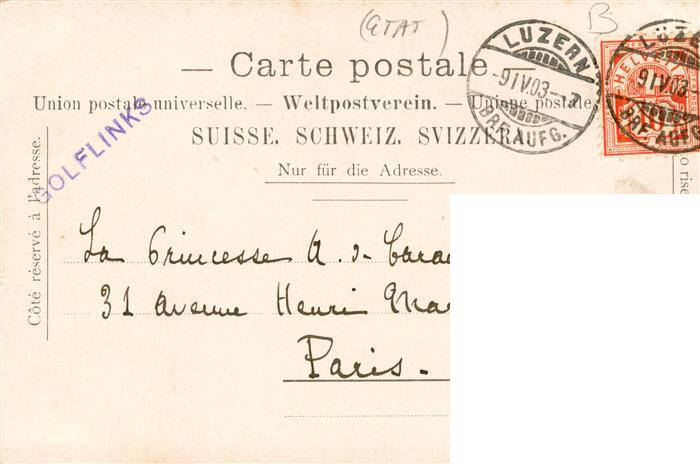 (ETAT) B
— Carte postale. —
Union postale universelle. — Weltpostverein. — Unione postale
SUISSE. SCHWEIZ. SVIZZERA.
Nur für die Adresse.
LUZERN
9 IV.03
BRF. AUFG.
LUZERN
9 IV.03
BRF. AUFG.
HELVETIA
GOLFLINKS
Côté réservé à l'adresse.
La Princesse A. de
31 Avenue Henri
Paris.